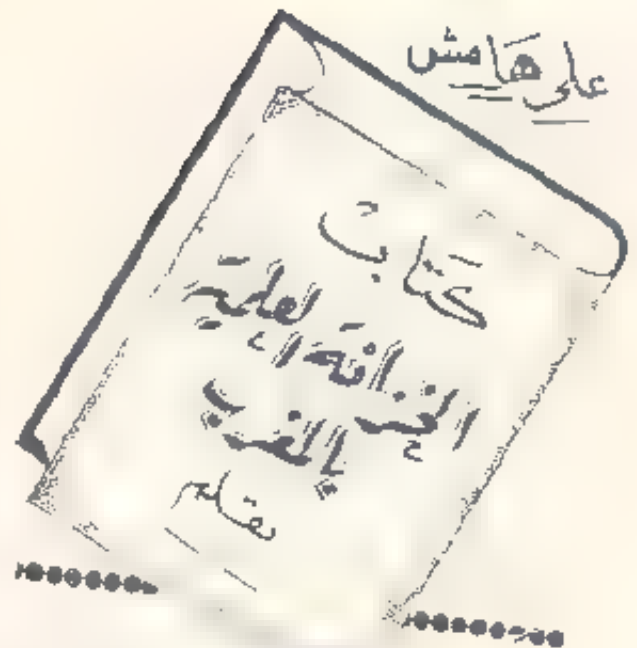 على هامش
كتاب
الخزانة العلمية
بالمغرب
بقلم